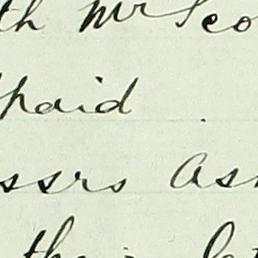 th Mr Sco
paid .
ssrs As
their let